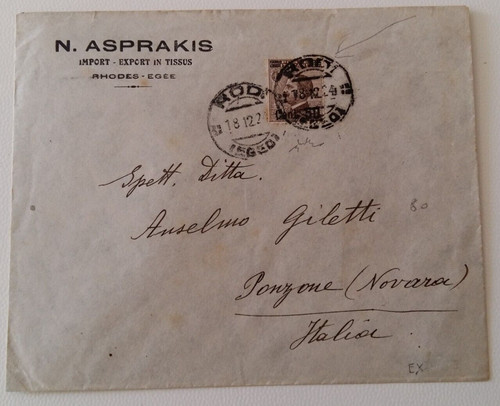 N. ASPRAKIS
IMPORT - EXPORT IN TISSUS
RHODES - EGÉE
RODI
18.12.24
(EGEO)
18.12.24
Spett. Ditta.
Anselmo Giletti
80
Ponzone (Novara)
Italia.
EX